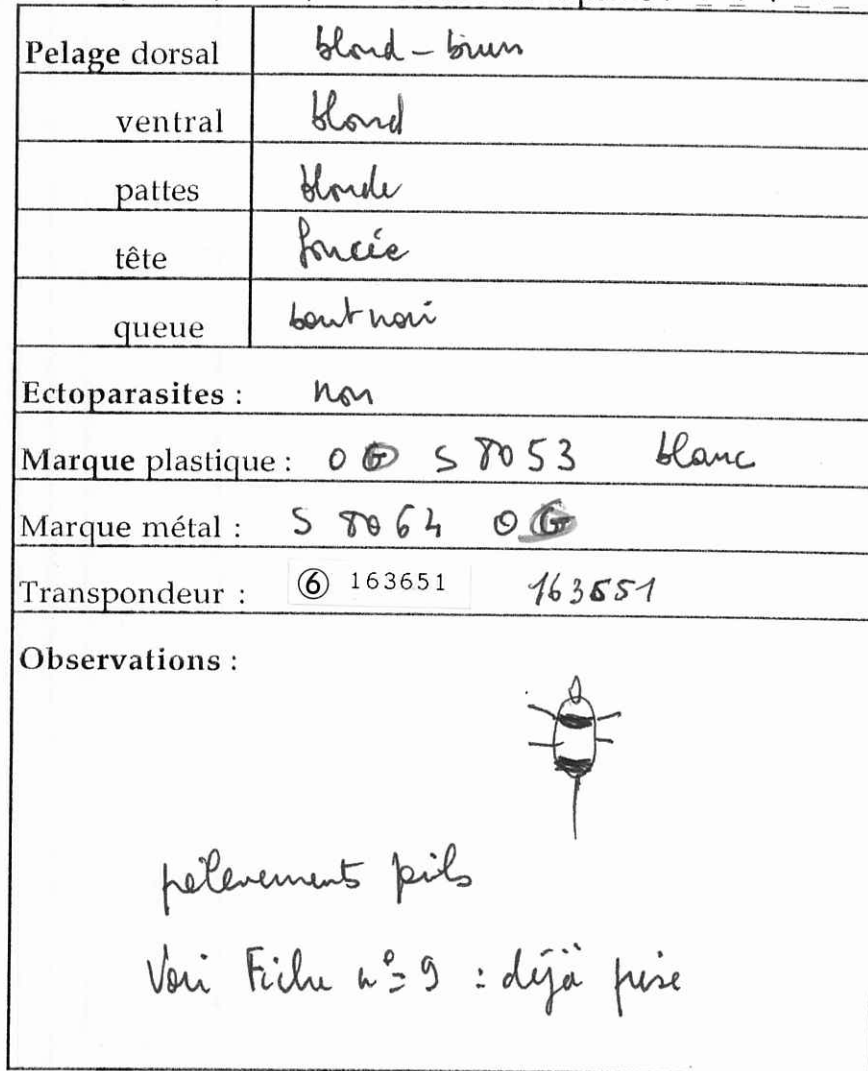 Pelage dorsal blond - brun
ventral blond
pattes blonde
tête foncée
queue bout noir
Ectoparasites : non
Marque plastique : O G S 8053 blanc
Marque métal : S 8064 O G
Transpondeur : ⑥ 163651 163651
Observations :
prélevements poils
Voir Fiche n° 9 : déjà prise